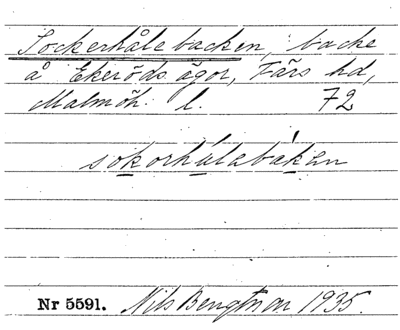 Sockerhålebacken, backe
å Ekeröds ägor, Färs hd,
Malmöh. l. 72
sokorhálabákan
Nr 5591. Nils Bengtsson 1935.